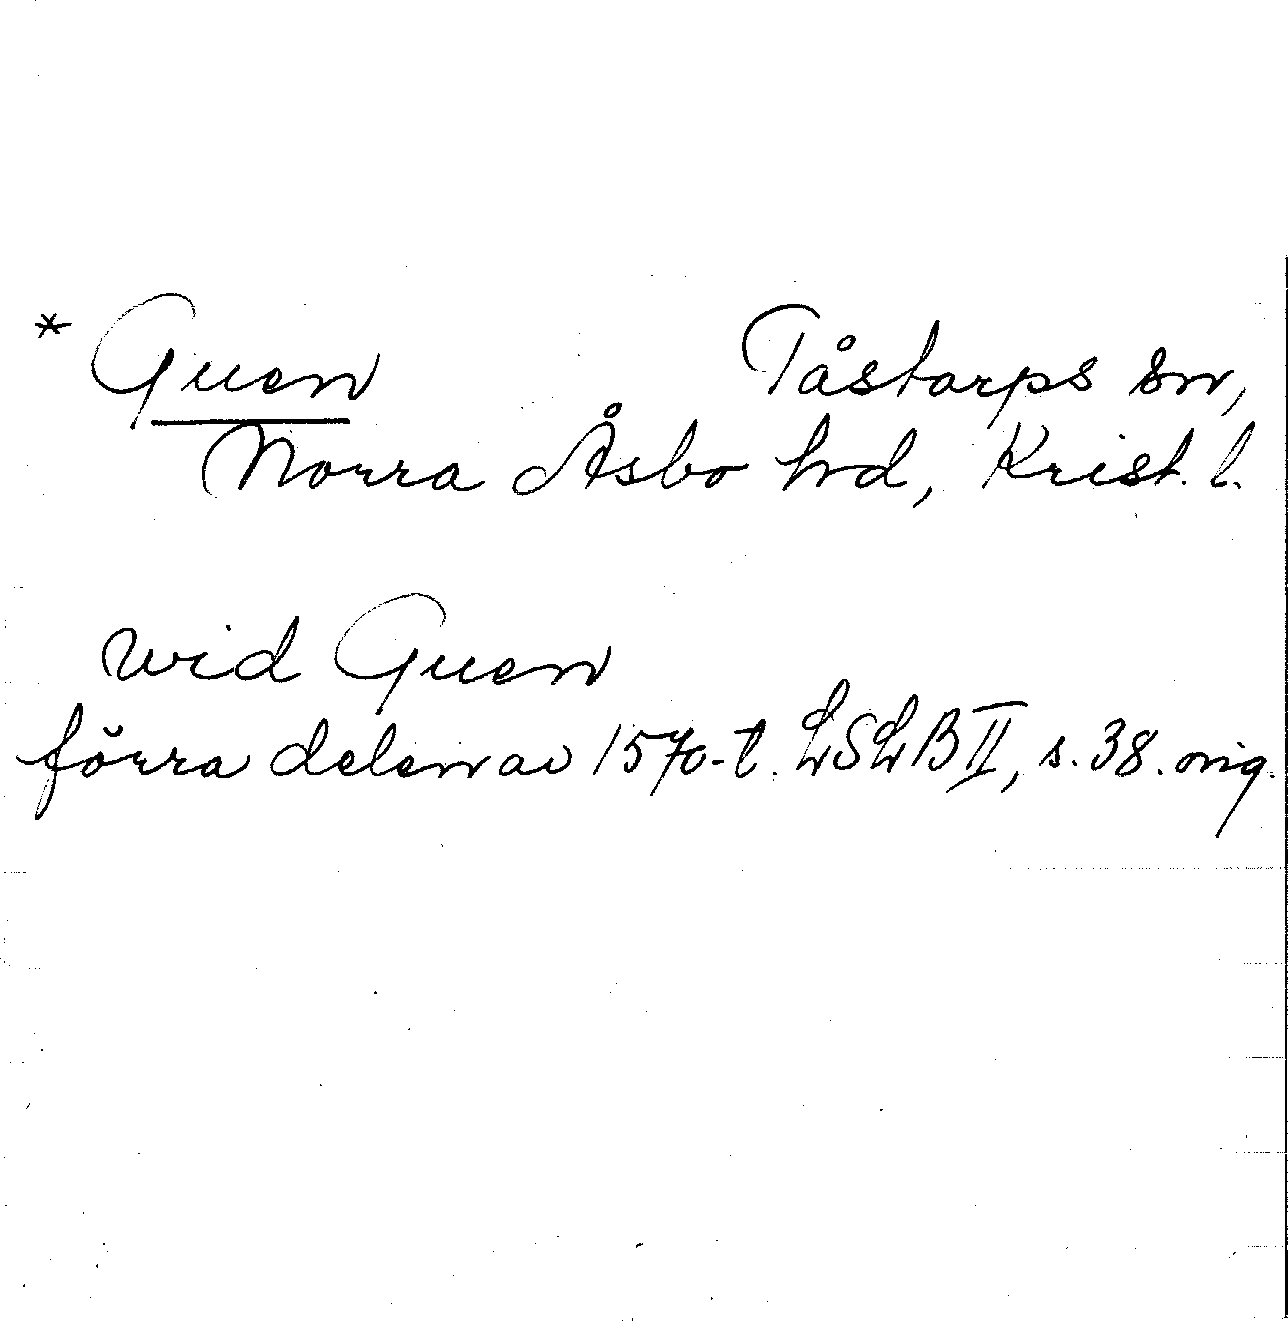 * Quen Tåstarps sn,
Norra Åsbo hrd, Krist. l.
wid Quen
förra delen av 1570-t. LSLB II, s. 38. orig.